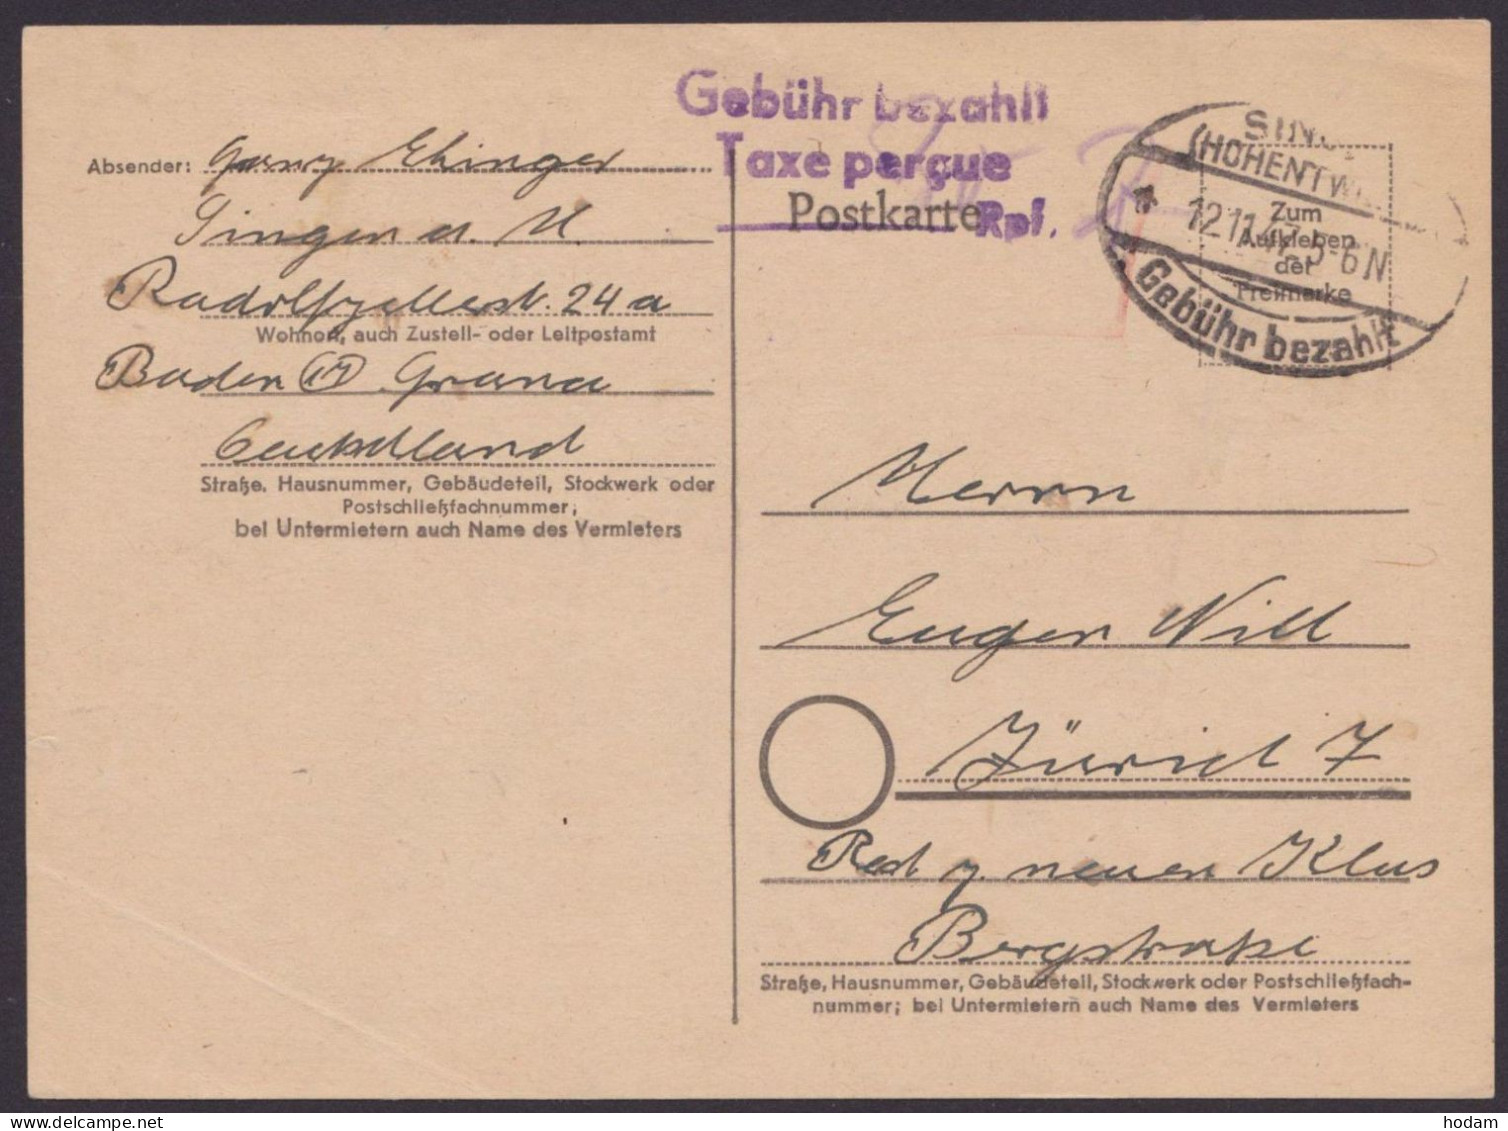 Gebühr bezahlt
Taxe perçue
Rpf.
Postkarte
SING
(HOHENTW
12.11.47. 5-6 N
Gebühr bezahlt
Zum
Aufkleben
der
Freimarke
Absender: Ehinger
Singen a. H.
Radolfzellerst. 24 a
Wohnort, auch Zustell- oder Leitpostamt
Baden (17)
Deutschland
Straße, Hausnummer, Gebäudeteil, Stockwerk oder
Postschließfachnummer;
bei Untermietern auch Name des Vermieters
Herrn
Eugen Will
Zürich 7
Rest. z. neuen Klus
Bergstraße
Straße, Hausnummer, Gebäudeteil, Stockwerk oder Postschließfach-
nummer; bei Untermietern auch Name des Vermieters
hodam